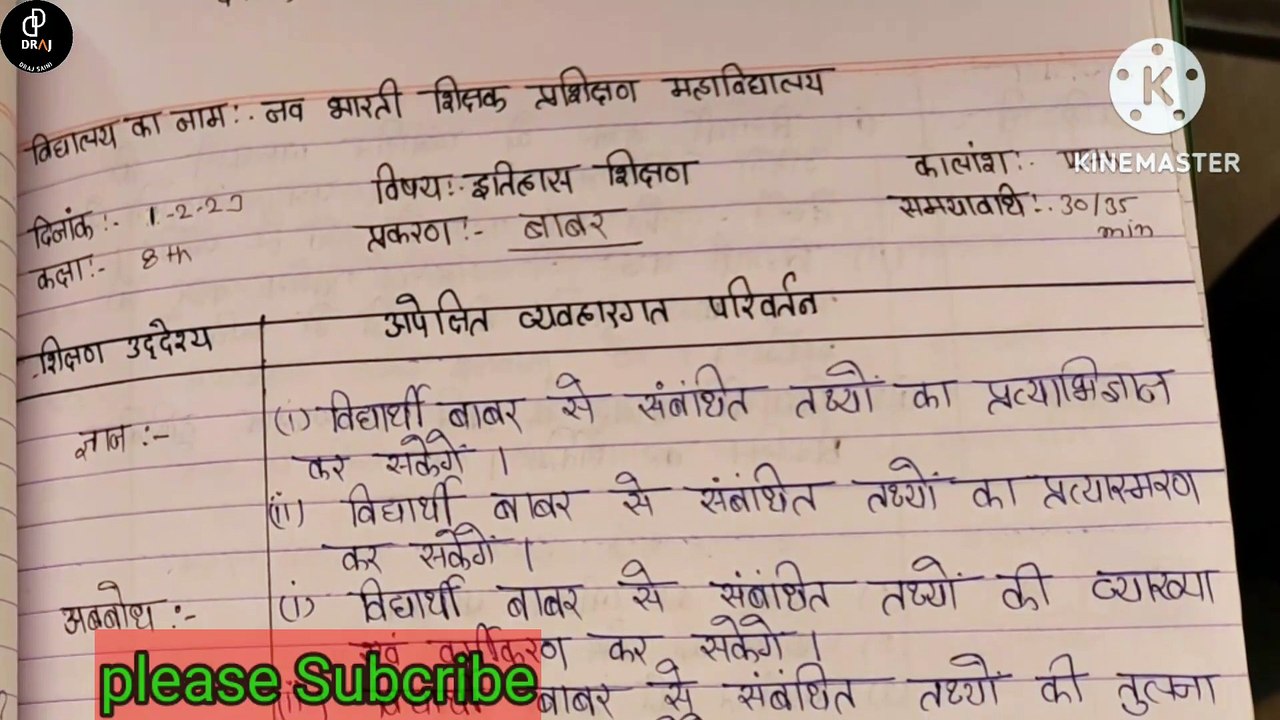 DRAJ
DRAJ SAINI
विद्यालय का नाम:- नव भारती शिक्षक प्रशिक्षण महाविद्यालय
KINEMASTER
दिनांक:- 1-2-23 विषय:- इतिहास शिक्षण कालांश:-
कक्षा:- 8th प्रकरण:- बाबर समयावधि:- 30/35
min
शिक्षण उद्देश्य अपेक्षित व्यवहारगत परिवर्तन
ज्ञान:- (i) विद्यार्थी बाबर से संबंधित तथ्यों का प्रत्याभिज्ञान
कर सकेगें ।
(ii) विद्यार्थी बाबर से संबंधित तथ्यों का प्रत्यास्मरण
कर सकेगें ।
अवबोध:- (i) विद्यार्थी बाबर से संबंधित तथ्यों की व्याख्या
एवं वर्गीकरण कर सकेगे ।
बाबर से संबंधित तथ्यों की तुलना
please Subcribe